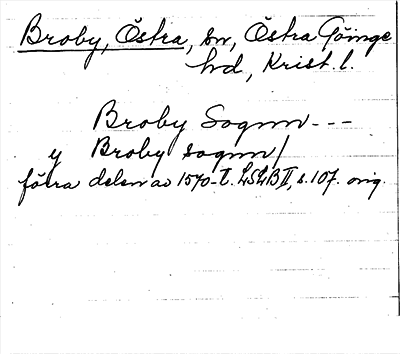 Broby, Östra, sn, Östra Göinge
hd, Krist. l.
Broby Sognn---
y Broby sognn/
förra delen av 1570-t. LSLB II, s. 107. orig.